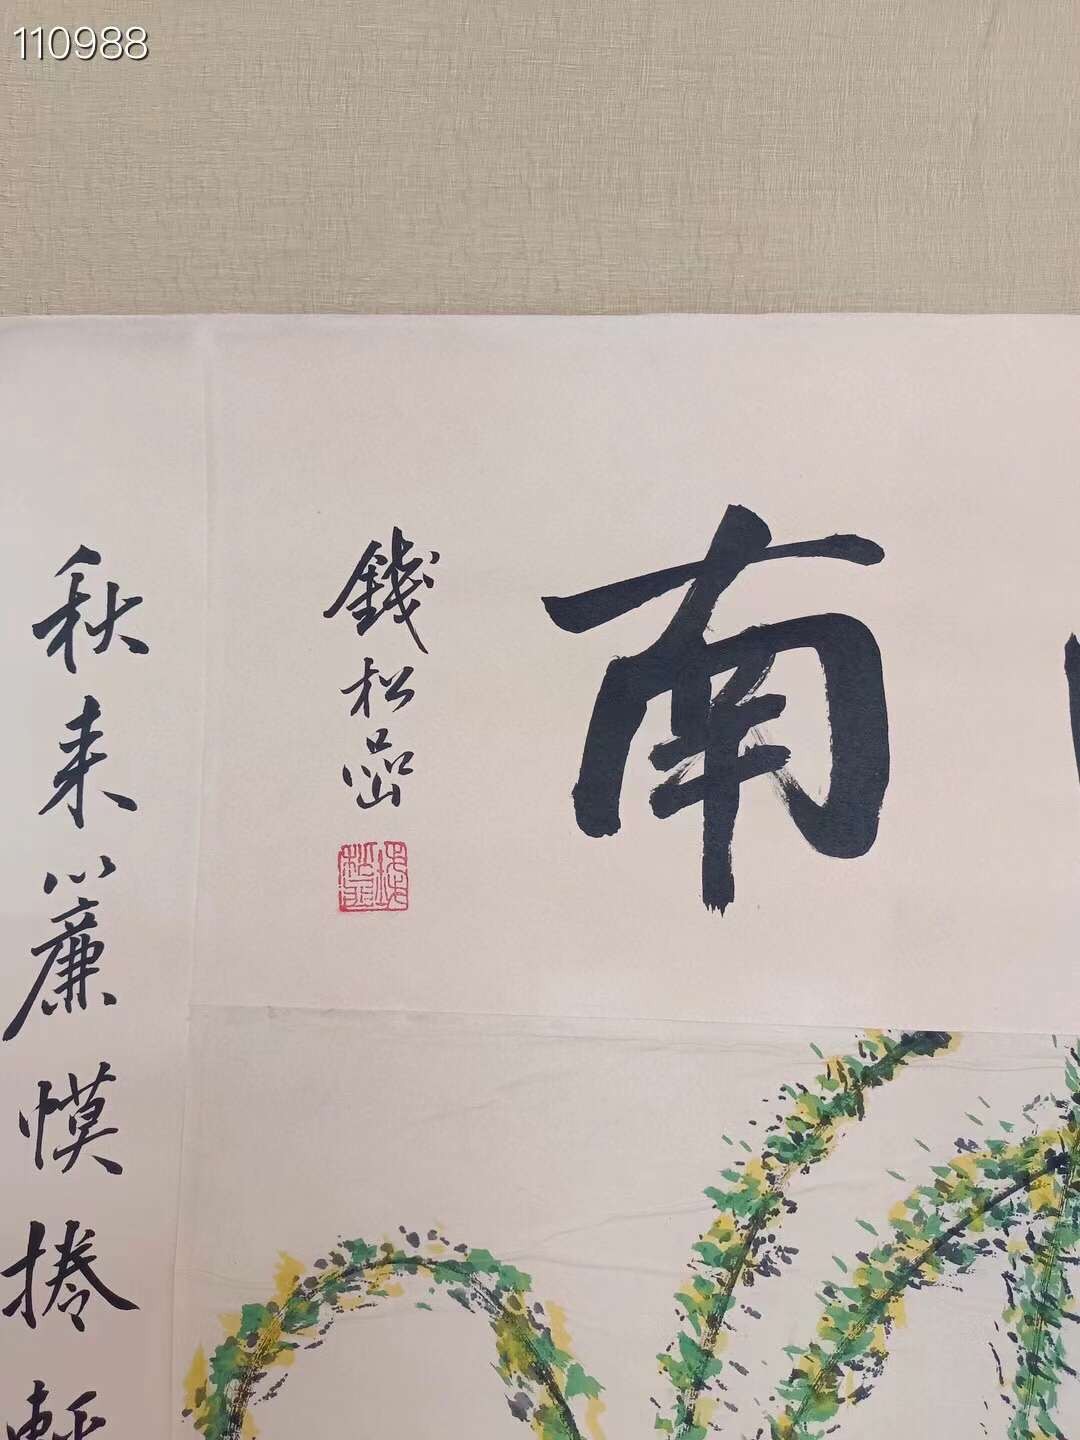 110988
南
錢松嵒
秋来簾幙捲